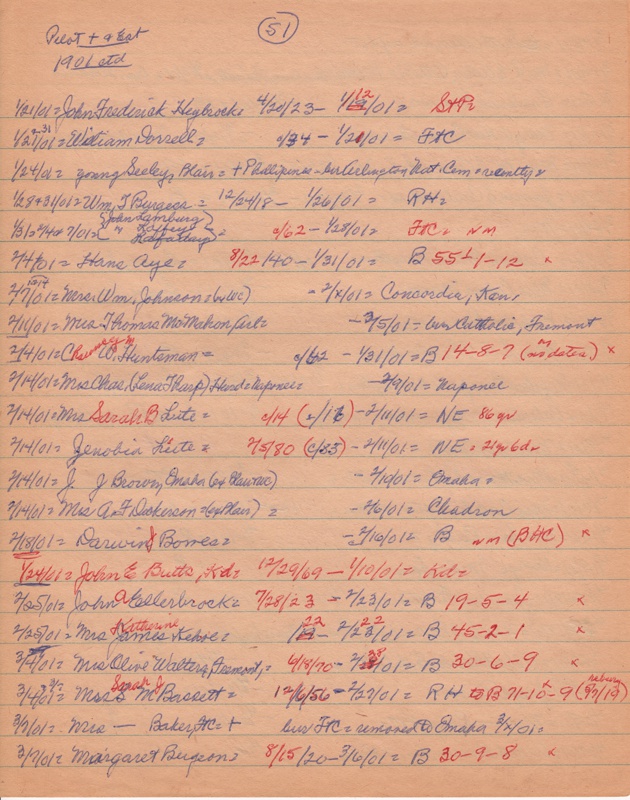 51
Pilot +
1901 ctd
1/21/01 = John Frederick Heybrock 4/20/23 - 1/12/01 = St P=
1/21/01 = William Dorrell = c/34 - 1/21/01 = FtC
1/24/01 = young Seeley, Blair = + Phillipines - bur Arlington Natl. Cem = recently *
1/28+31/01 = Wm. T Burgess = 12/24/18 - 1/26/01 = RH =
John Lamburg
= c/62 - 1/28/01 = FtC = NM
2/4/01 = Hans Aye = 8/22/40 - 1/31/01 = B 55-1-12 x
2/7/01 = Mrs. Wm. Johnson = (exWC) - 2/x/01 = Concordia, Kan.
2/11/01 = Mrs Thomas McMahon, Arl = - 2/5/01 = bur Catholic, Fremont
2/14/01 = C W. Huntsman = c/62 - 1/31/01 = B 14-8-7 (no dates) x
2/14/01 = Mrs Chas. (Lena Tharp) Hurd = Naponee = - 2/9/01 = Naponee
2/14/01 = Mrs Sarah B Lute = c/14 (c/16) - 2/11/01 = NE 86 yr
2/14/01 = Zenobia Lute = 2/5/80 (c/85) - 2/11/01 = NE = 21 yr 6 da
2/14/01 = J. J Brown, Omaha - 2/10/01 = Omaha =
2/14/01 = Mrs A. F Dickerson = (ex Blair) = - 2/6/01 = Chadron
2/18/01 = Darwin J Bowes = - 2/16/01 = B NM (BHC) x
1/24/01 = John E Butts, Kd = 12/29/69 - 1/10/01 = Kd =
2/25/01 = John A Ellerbrock = 7/28/23 - 2/23/01 = B 19-5-4 x
2/25/01 = Mrs Katherine James Kehoe = 1/22 - 2/22/01 = B 45-2-1 x
3/4/01 = Mrs Olive Walters, Fremont, = 4/18/70 - 2/28/01 = B 30-6-9 x
3/4/01 = Mrs Sarah J M Bassett = 12/6/56 - 2/27/01 = RH to B 71-10-9 (rebury 9/7/19) x
3/7/01 = Mrs — Baker, FtC = + bur FtC = removed to Omaha 3/2/01 =
3/7/01 = Margaret Burgeon = 8/15/20 - 3/6/01 = B 30-9-8 x